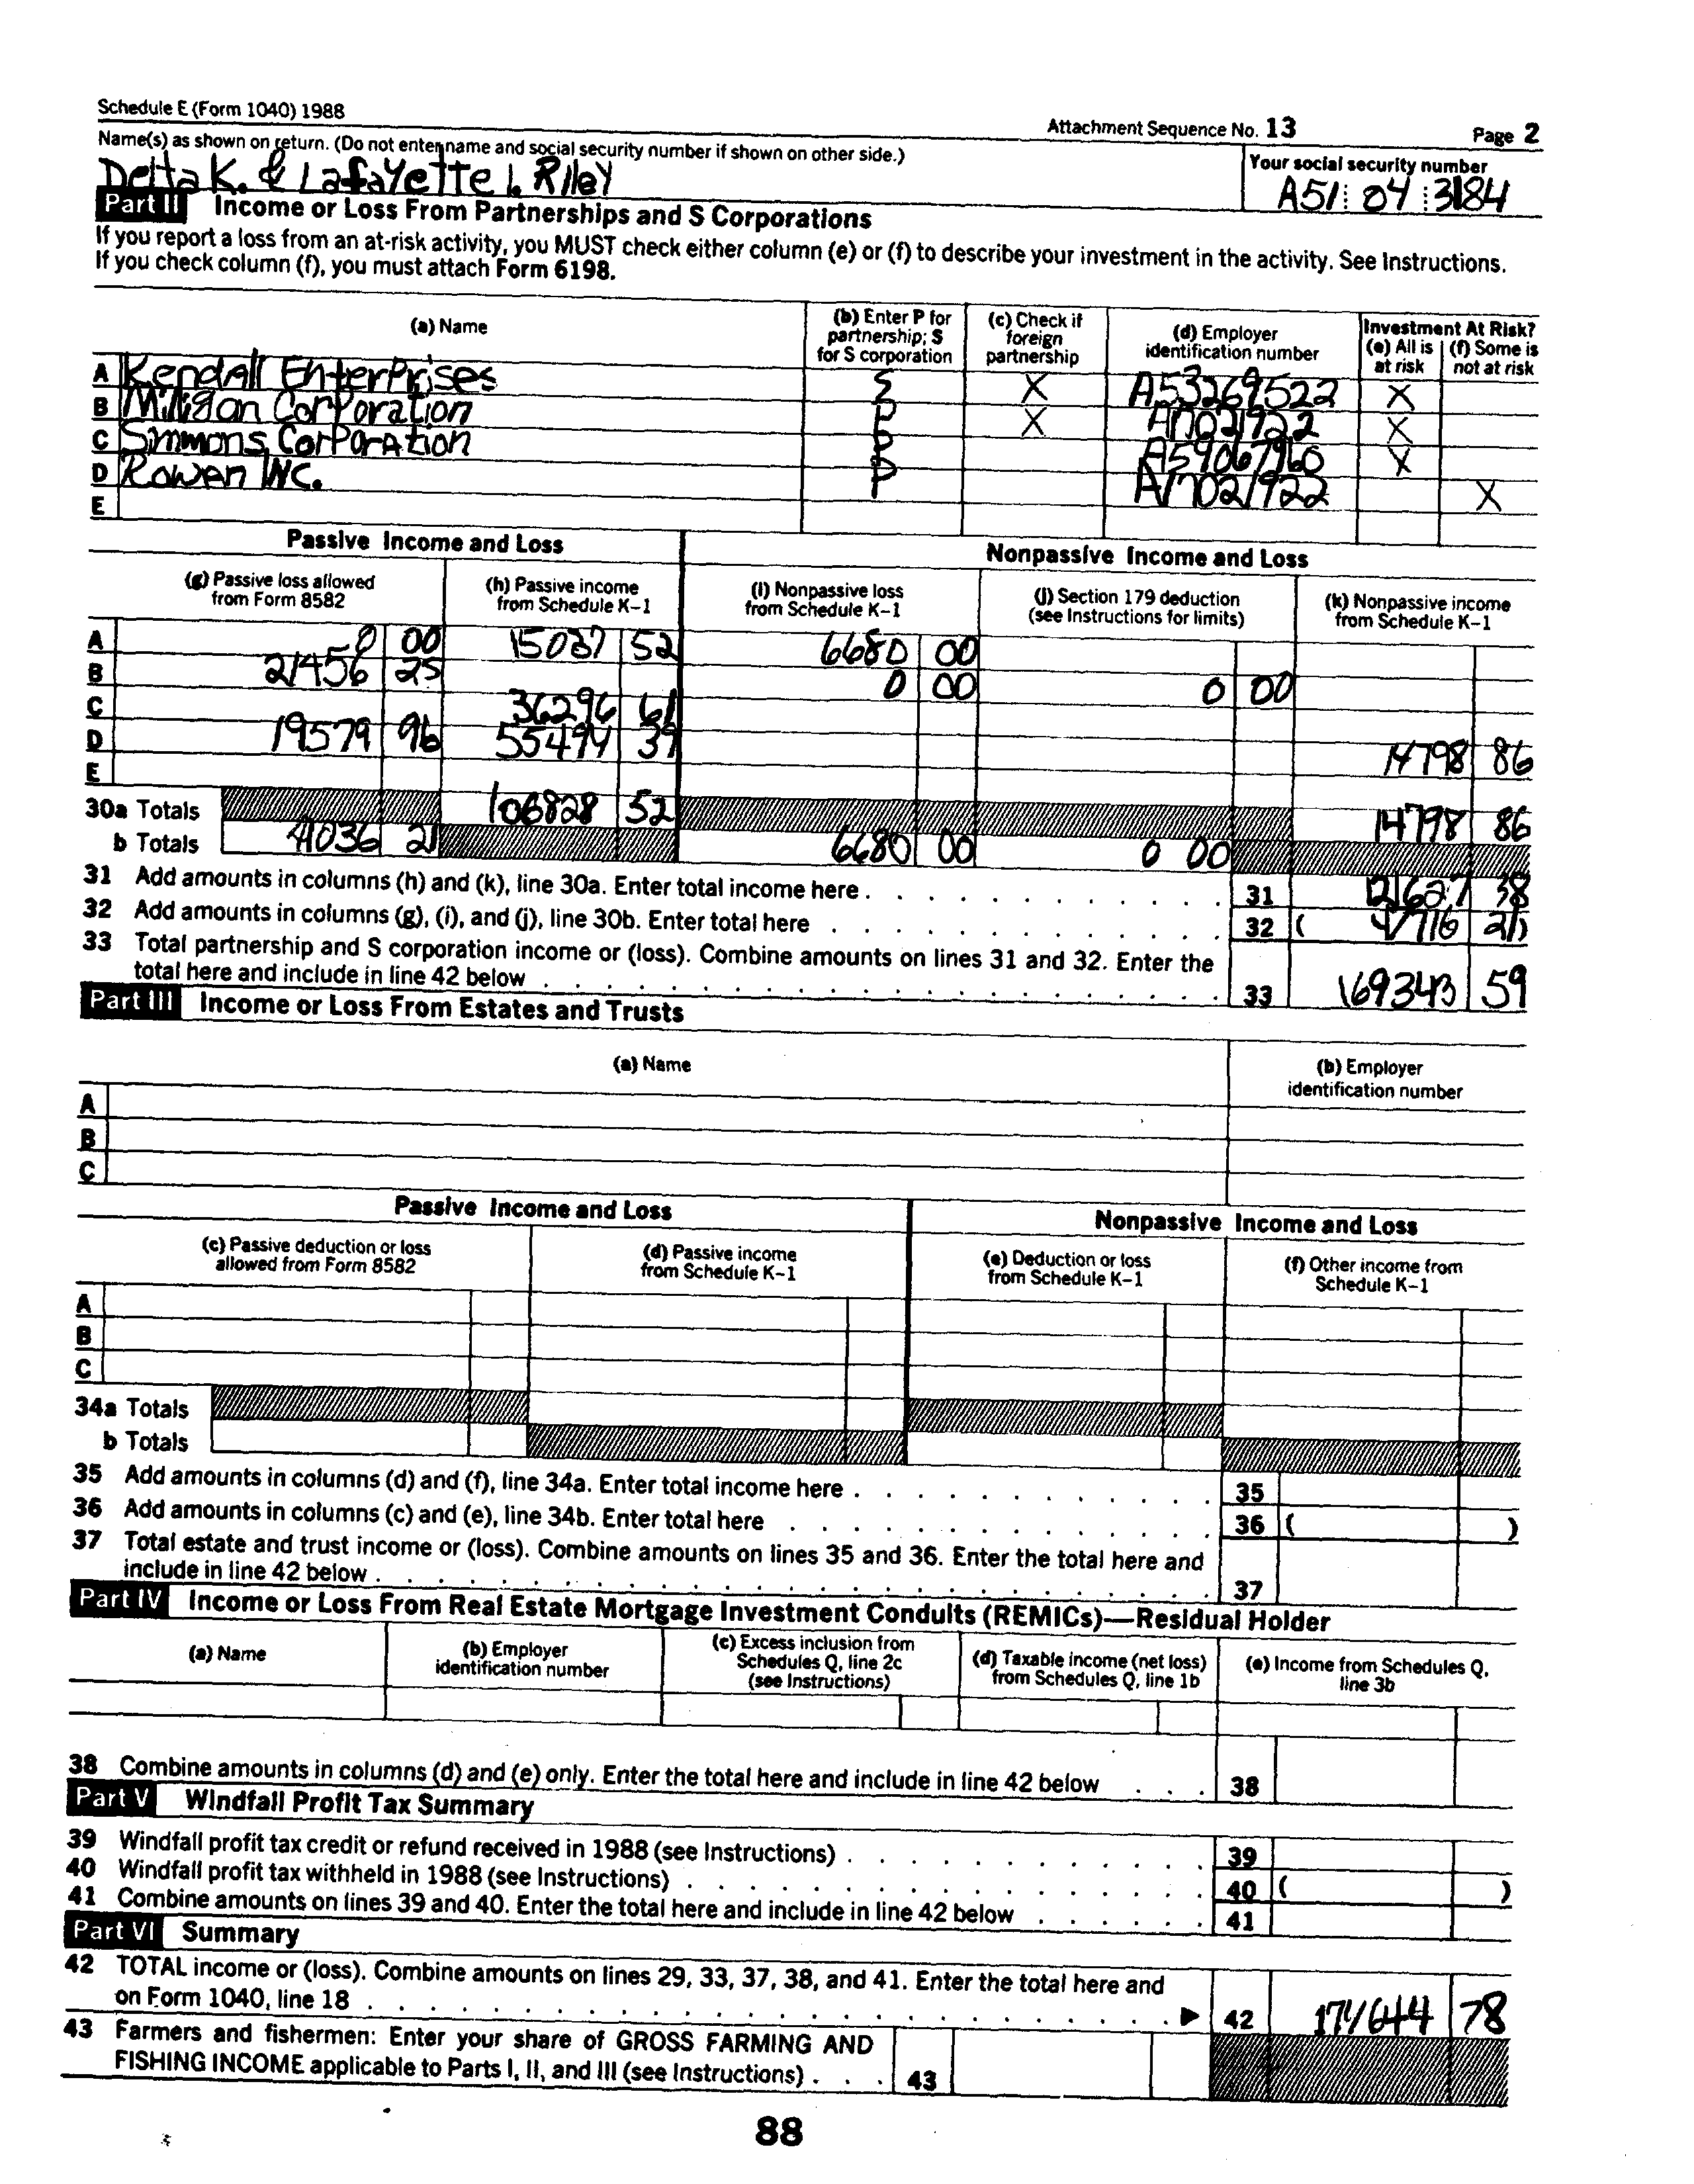 Schedule E (Form 1040) 1988
Attachment Sequence No. 13 Page 2
Name(s) as shown on return. (Do not enter name and social security number if shown on other side.)
Your social security number
Delta K. & Lafayette I. Riley
A51 04 3184
Part II Income or Loss From Partnerships and S Corporations
If you report a loss from an at-risk activity, you MUST check either column (e) or (f) to describe your investment in the activity. See Instructions.
If you check column (f), you must attach Form 6198.
(a) Name
(b) Enter P for partnership; S for S corporation
(c) Check if foreign partnership
(d) Employer identification number
Investment At Risk?
(e) All is at risk
(f) Some is not at risk
A Kendall Enterprises S X A53269522 X
B Milligan Corporation P X X
C Simmons Corporation P A59067960 X
D Rowen INC. P X
E
Passive Income and Loss
Nonpassive Income and Loss
(g) Passive loss allowed from Form 8582
(h) Passive income from Schedule K-1
(i) Nonpassive loss from Schedule K-1
(j) Section 179 deduction (see Instructions for limits)
(k) Nonpassive income from Schedule K-1
A 0 00 15037 52 6680 00
B 21456 25 0 00 0 00
C 36296 61
D 19579 96 55494 39 14798 86
E
30a Totals 106828 52 14798 86
b Totals 41036 21 6680 00 0 00
31 Add amounts in columns (h) and (k), line 30a. Enter total income here 31 121627 38
32 Add amounts in columns (g), (i), and (j), line 30b. Enter total here 32 ( 47716 21)
33 Total partnership and S corporation income or (loss). Combine amounts on lines 31 and 32. Enter the
total here and include in line 42 below 33 169343 59
Part III Income or Loss From Estates and Trusts
(a) Name
(b) Employer identification number
A
B
C
Passive Income and Loss
Nonpassive Income and Loss
(c) Passive deduction or loss allowed from Form 8582
(d) Passive income from Schedule K-1
(e) Deduction or loss from Schedule K-1
(f) Other income from Schedule K-1
A
B
C
34a Totals
b Totals
35 Add amounts in columns (d) and (f), line 34a. Enter total income here 35
36 Add amounts in columns (c) and (e), line 34b. Enter total here 36 ( )
37 Total estate and trust income or (loss). Combine amounts on lines 35 and 36. Enter the total here and
include in line 42 below 37
Part IV Income or Loss From Real Estate Mortgage Investment Conduits (REMICs)—Residual Holder
(a) Name
(b) Employer identification number
(c) Excess inclusion from Schedules Q, line 2c (see Instructions)
(d) Taxable income (net loss) from Schedules Q, line 1b
(e) Income from Schedules Q, line 3b
38 Combine amounts in columns (d) and (e) only. Enter the total here and include in line 42 below 38
Part V Windfall Profit Tax Summary
39 Windfall profit tax credit or refund received in 1988 (see Instructions) 39
40 Windfall profit tax withheld in 1988 (see Instructions) 40 ( )
41 Combine amounts on lines 39 and 40. Enter the total here and include in line 42 below 41
Part VI Summary
42 TOTAL income or (loss). Combine amounts on lines 29, 33, 37, 38, and 41. Enter the total here and
on Form 1040, line 18 42 78
43 Farmers and fishermen: Enter your share of GROSS FARMING AND
FISHING INCOME applicable to Parts I, II, and III (see Instructions) 43
88